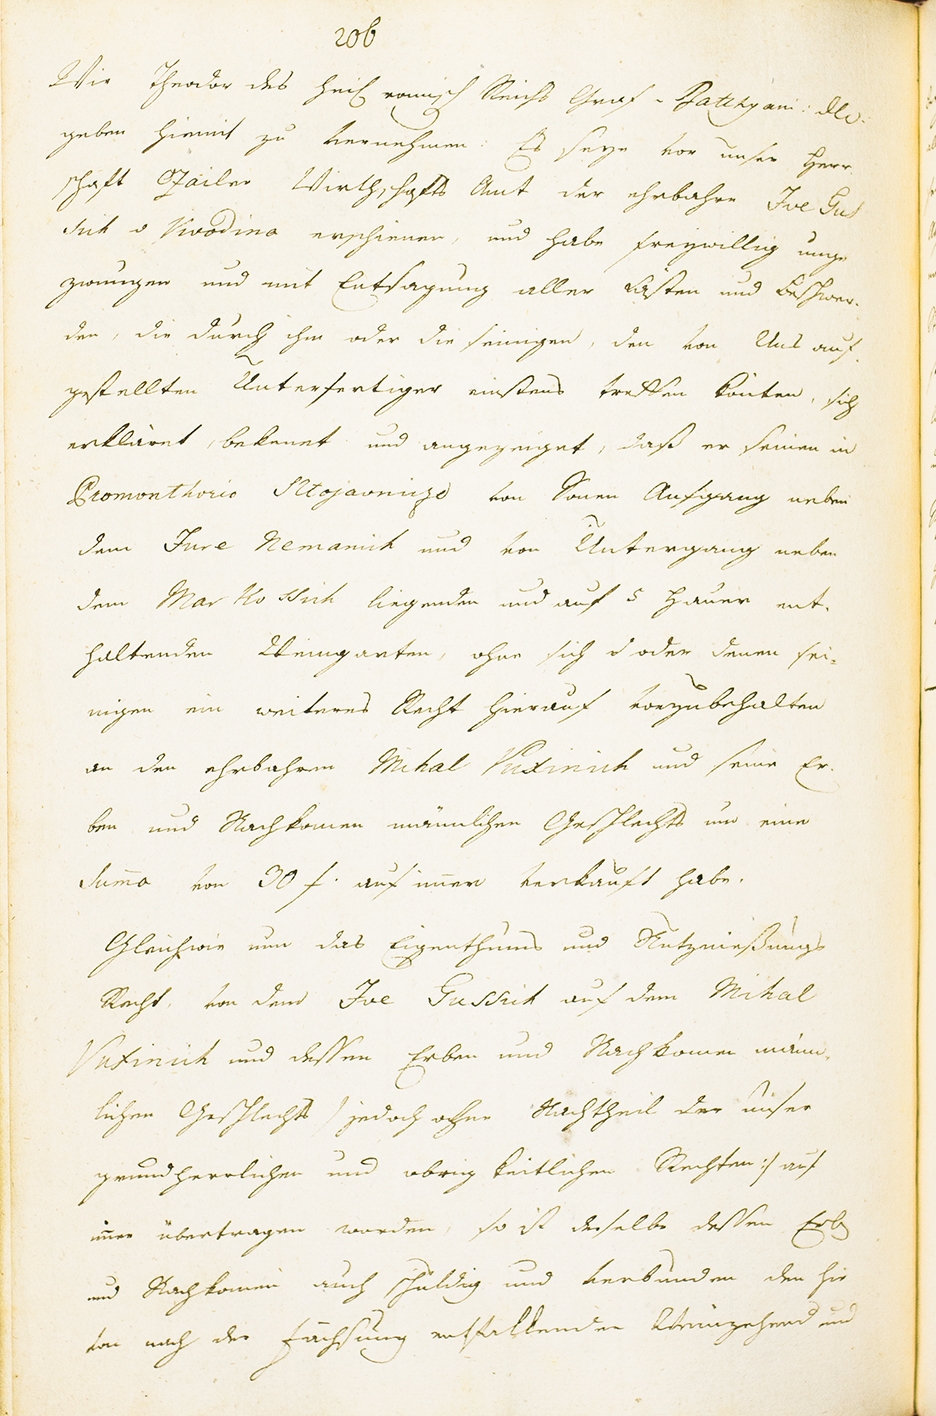 206
Wir Theodor des heil romisch Reichs Graf v Batthyani: etc:
geben hiemit zu vernehmen: Es seye vor unser Herr
schaft Ozailer Wirthschafts Amt der ehrbahre Ive Gus
sich v Vivodina erschienen, und habe freywillig unge
zwungen und mit Entsagung aller Lästen und Beschwer-
den, die durch ihn oder die seinigen, den von Uns auf
gestellten Unterfertiger einstens treffen könten, sich
erkläret, bekenet und angezeiget, daß er seinen in
Promonthorio Stojavnize von Sonen Aufgang neben
dem Jure Nemanich und von Untergang neben
dem Mar Kossich liegenden und auf 5 Hauer ent-
haltenden Weingarten, ohne sich oder denen sei-
nigen ein weiteres Recht hierauf vorzubehalten
an den ehrbahren Mihal Vuxinich und seine Er-
ben und Nachkomen mänlichen Geschlechts um eine
Suma von 30 f. auf imer verkauft habe.
Gleichwie nun das Eigenthums und Nutznießungs
Recht von dem Ive Gussich auf dem Mihal
Vuxinich und dessen Erben und Nachkomen män-
lichen Geschlechts /: jedoch ohne Nachtheil der unser
grundherrlichen und obrigkeitlichen Rechten :/ auf
imer übertragen worden, so ist derselbe dessen Erb
und Nachkomen auch schuldig und verbunden den hie
von nach der Fächsung entfallenden Weinzehend und